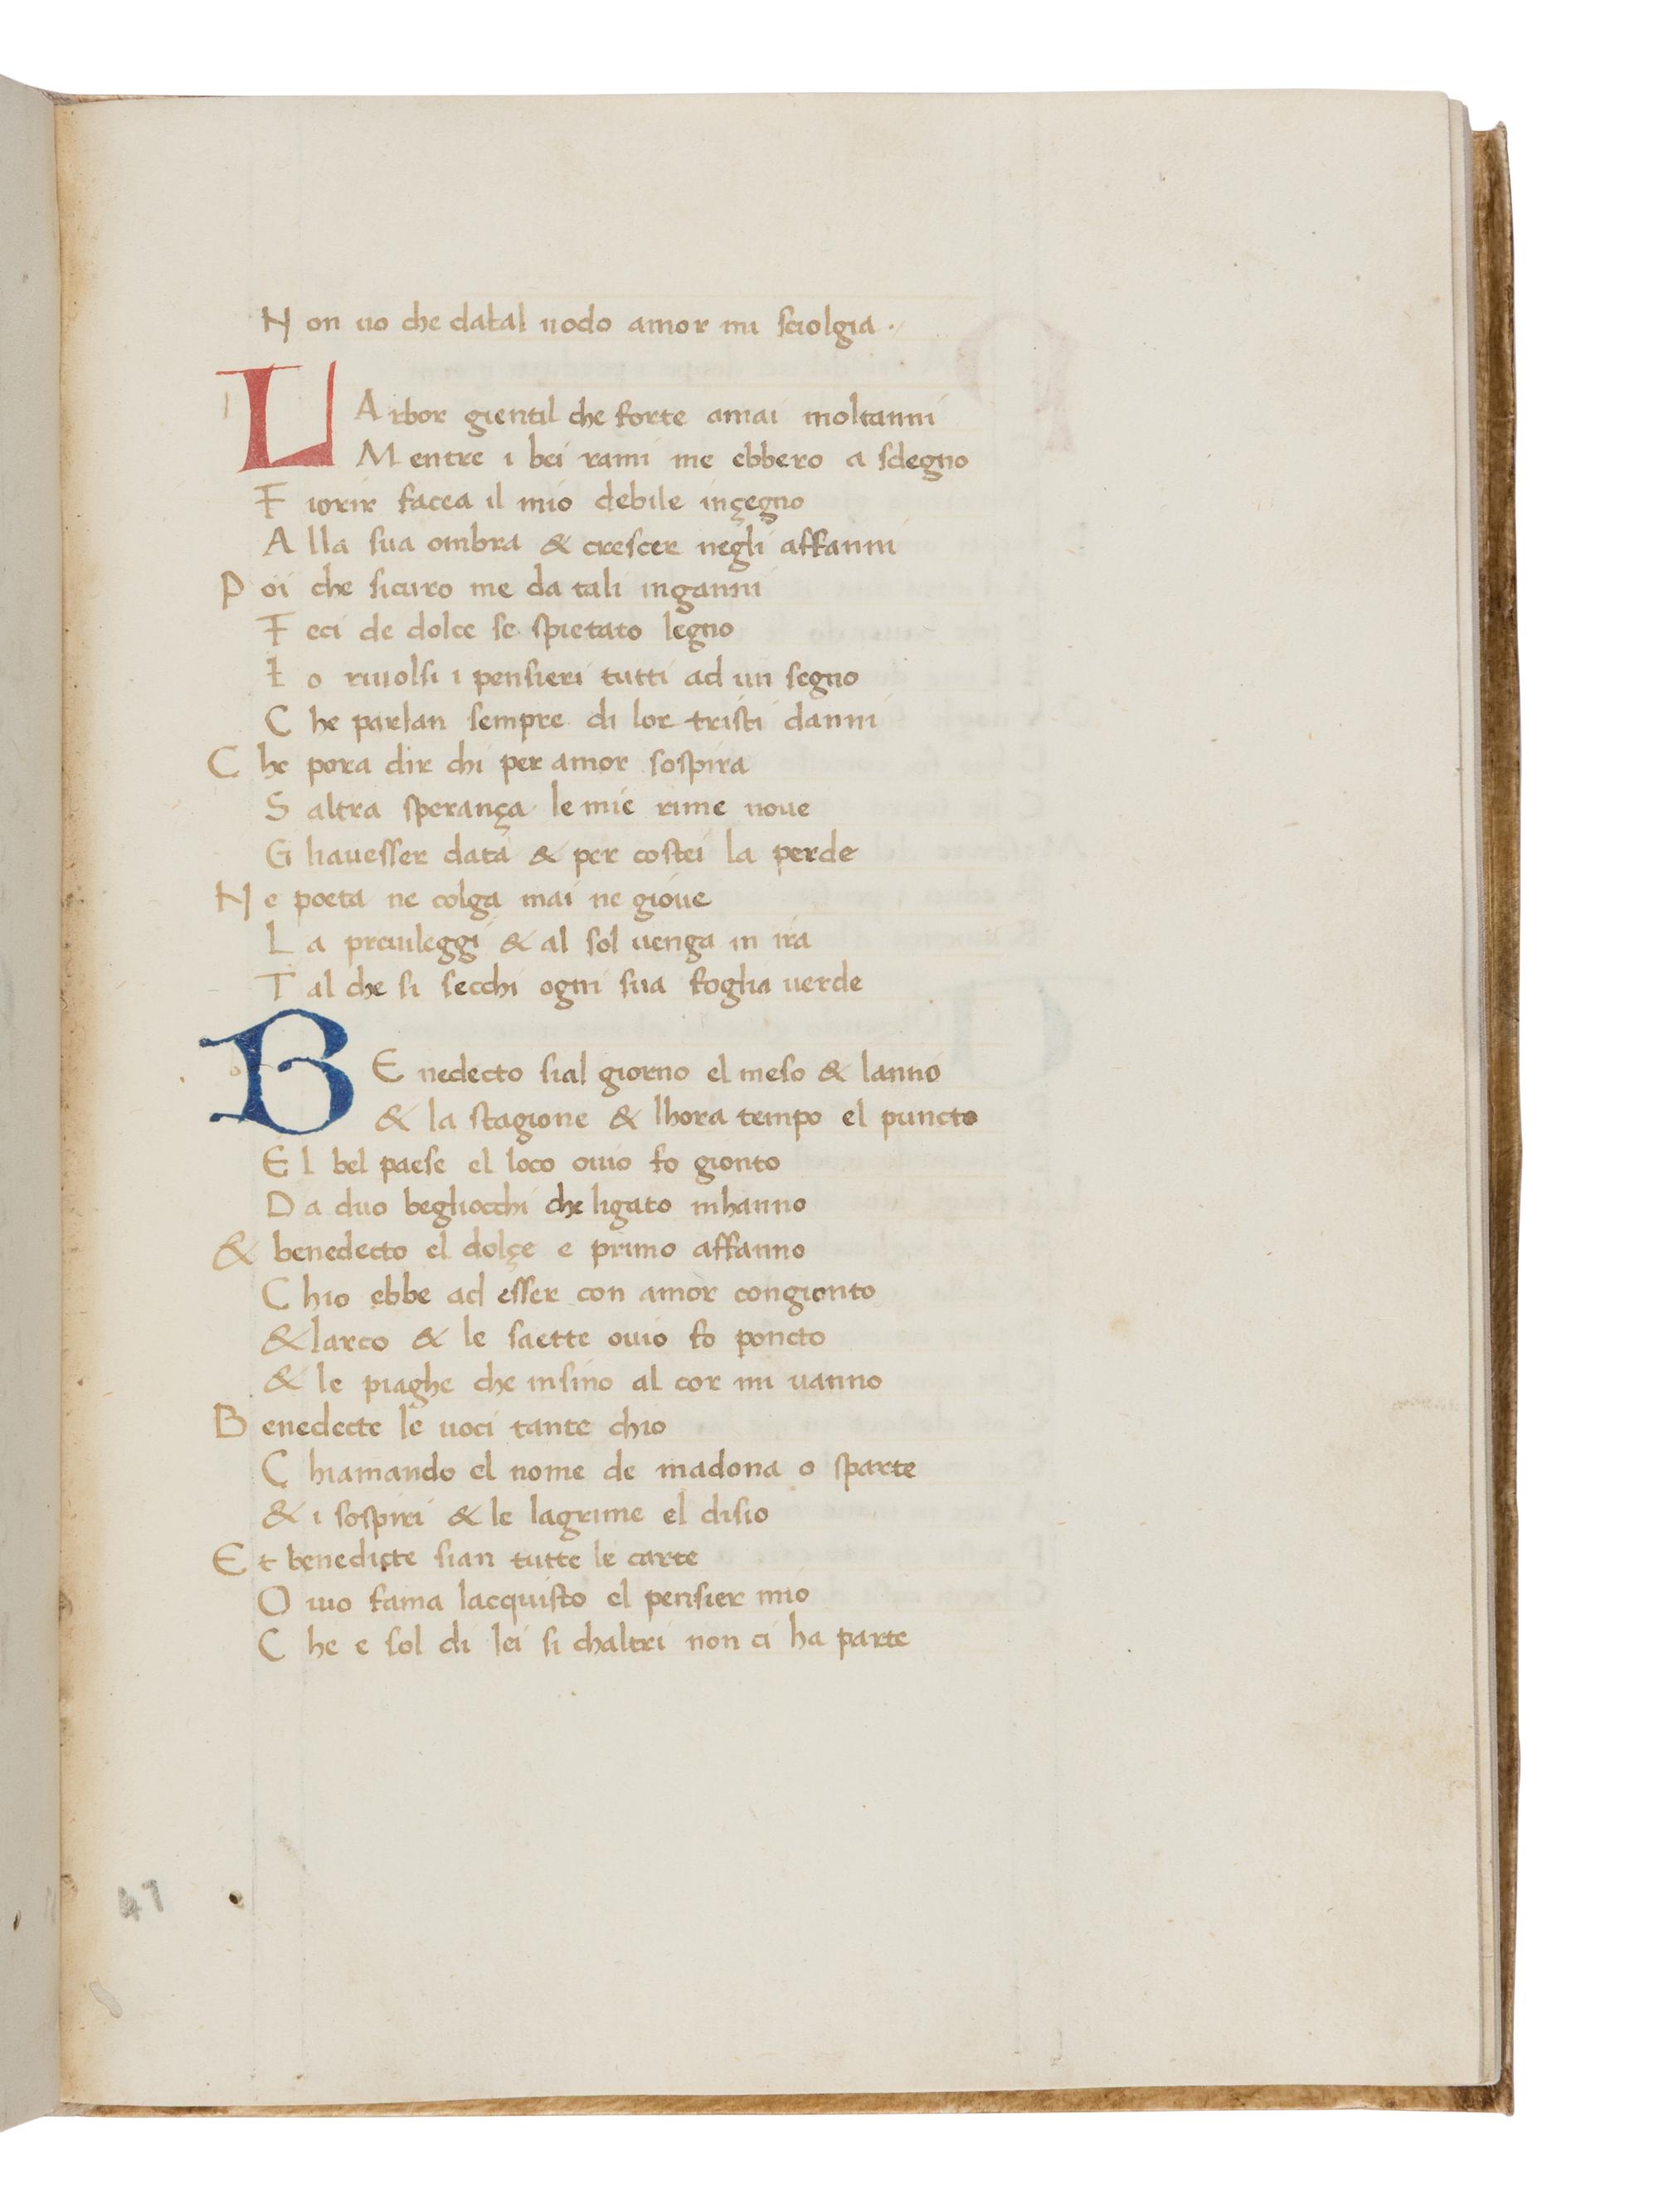 Non uo che datal nodo amor mi sciolgia.
LArbor gientil che forte amai moltanni
Mentre i bei rami me ebbero a sdegno
Fiorir facea il mio debile inçegno
Alla sua ombra & crescer negli affanni
Poi che sicuro me da tali inganni
Feci de dolce se spietato legno
Io riuolsi i pensieri tutti ad un segno
Che parlan sempre di lor tristi danni
Che pora dir chi per amor sospira
Saltra sperança le mie rime noue
Gli hauesser data & per costei la perde
Ne poeta ne colga mai ne gioue
La preuileggi & al sol uenga in ira
Tal che si secchi ogni sua foglia uerde
BEnedecto sial giorno el meso & lanno
& la stagione & lhora tempo el puncto
El bel paese el loco ouio fo gionto
Da duo begliocchi che ligato mhanno
& benedecto el dolçe e primo affanno
Chio ebbe ad esser con amor congionto
& larco & le saette ouio fo poncto
& le piaghe che insino al cor mi uanno
Benedecte le uoci tante chio
Chiamando el nome de madona o sparte
& i sospiri & le lagrime el disio
Et benedicte sian tutte le carte
Ouio fama lacquisto el pensier mio
Che e sol di lei si chaltri non ci ha parte
47